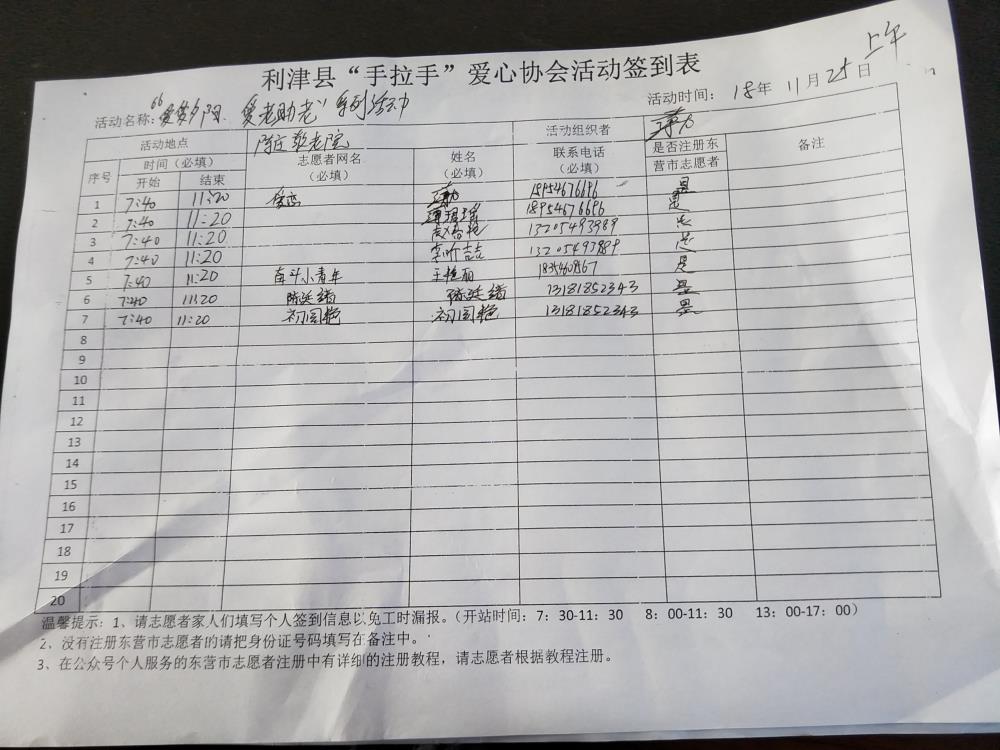 上午
利津县“手拉手”爱心协会活动签到表
活动名称：“爱梦夕阳 爱老助老”系列活动 活动时间： 18年 11月 25日
活动地点 陈庄敬老院 活动组织者
序号 时间（必填） 志愿者网名（必填） 姓名（必填） 联系电话（必填） 是否注册东营市志愿者 备注
开始 结束
1 7:40 11:20 18954676696 是
2 7:40 11:20 18954676696 是
3 7:40 11:20 13205493989 是
4 7:40 11:20 李昕喆 13205493989 是
5 7:40 11:20 奋斗小青年 王艳丽 是
6 7:40 11:20 陈延绪 陈延绪 13181852343 是
7 7:40 11:20 初国艳 初国艳 13181852343 是
8
9
10
11
12
13
14
15
16
17
18
19
20
温馨提示：1、请志愿者家人们填写个人签到信息以免工时漏报。（开站时间：7：30-11：30 8：00-11：30 13：00-17：00）
2、没有注册东营市志愿者的请把身份证号码填写在备注中。
3、在公众号个人服务的东营市志愿者注册中有详细的注册教程，请志愿者根据教程注册。